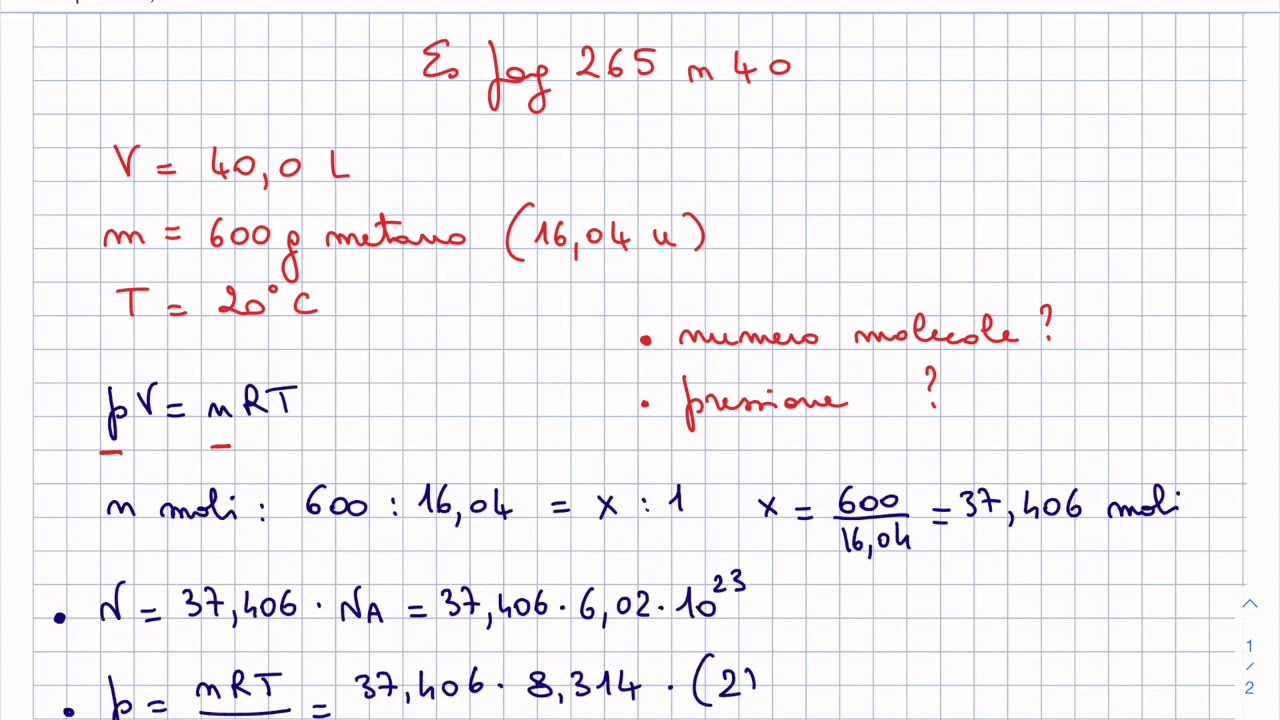 Es pag 265 n 40
V = 40,0 L
m = 600 g metano (16,04 u)
T = 20° C
• numero molecole ?
• pressione ?
pV = nRT
n moli : 600 : 16,04 = x : 1 x = 600/16,04 = 37,406 moli
• N = 37,406 · NA = 37,406 · 6,02 · 10²³
• p = nRT = 37,406 · 8,314 · (2
1
2